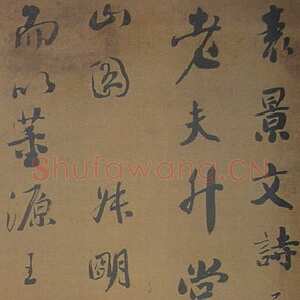 袁景文詩
老夫
山圖 明
而以葉源王
Shufawang.CN